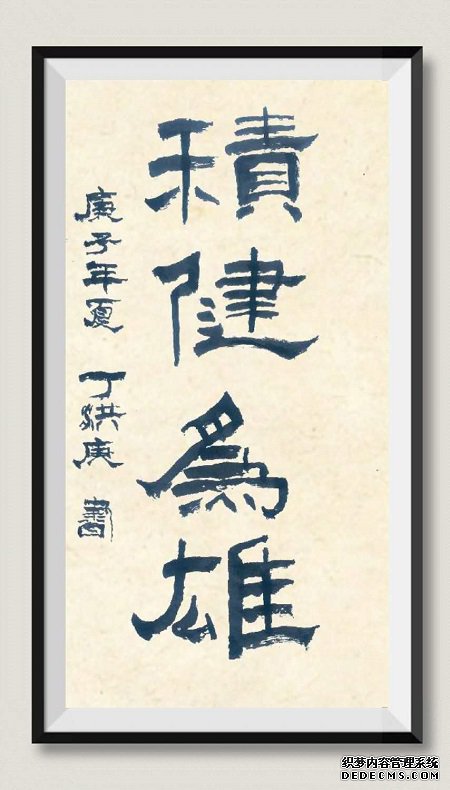 積健為雄
庚子年夏 丁洪庚 書
织梦内容管理系统
DEDECMS.COM